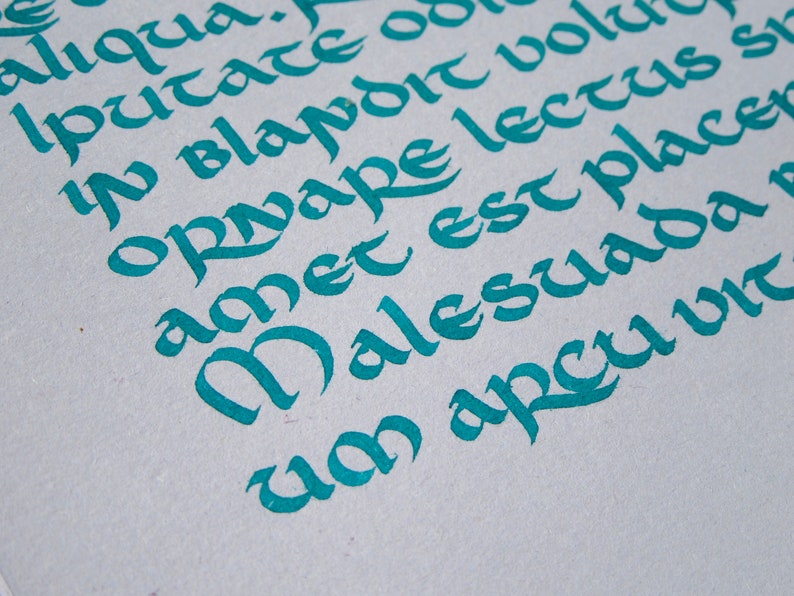 aliqua.
lputate odio
in blandit volutp
ornare lectus sp
amet est placer
Malesuada
um arcu vit